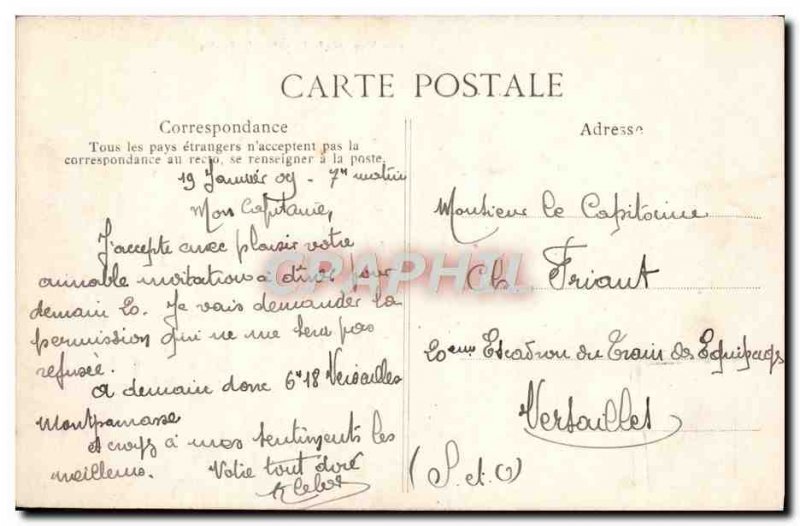 CARTE POSTALE
Correspondance
Tous les pays étrangers n'acceptent pas la
correspondance au recto, se renseigner à la poste.
19 Janvier 09 - 7h matin
Mon Capitaine,
J'accepte avec plaisir votre
aimable invitation à dîner pour
demain 20. Je vais demander la
permission qui ne me sera pas
refusée.
a demain donc 6h18 Versailles
Montparnasse
et croyez à mes sentiments les
meilleurs. Votre tout
Adresse
Monsieur le Capitaine
Ch. Friant
20eme Escadron du Train des Equipages
Versailles
(S. et O)
CPAPHIL